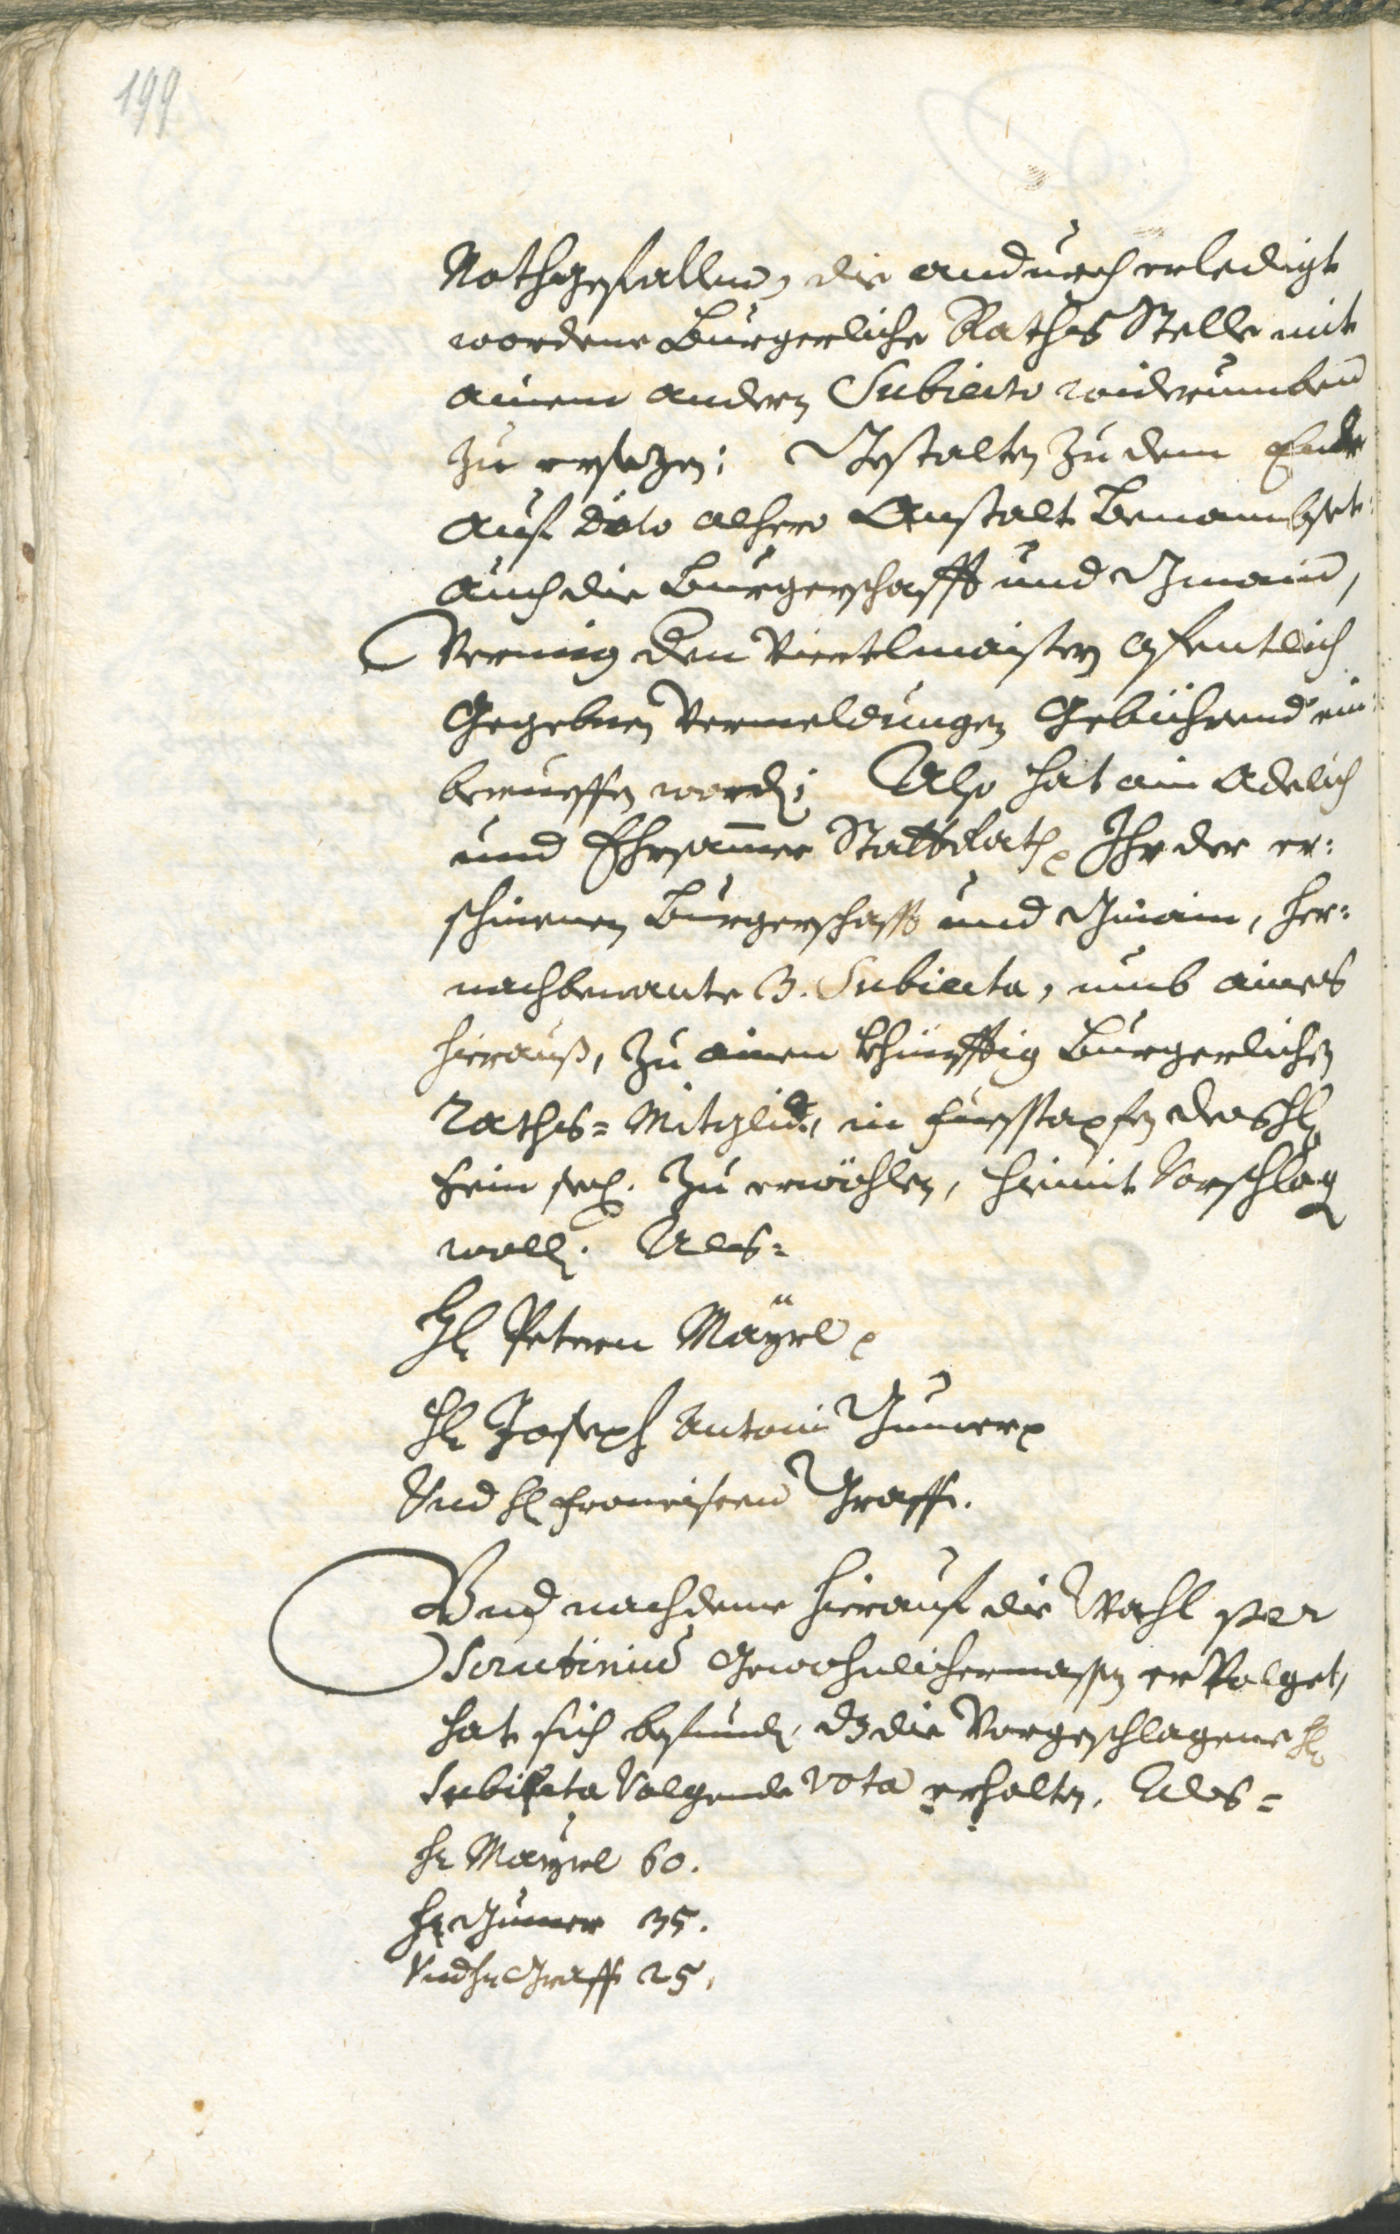 199
Nothgefallen, die andurch erledigt
wordene Burgerliche Raths Stelle mit
ainem andern Subiecto widerumben
zu ersezen: Gestalten zu dem Ende
auf dato alhero Anstalt benambset
auch die Burgerschafft und Gmain,
Vermig den Viertlmaistern öfentlich
Gegebnen Vermeldungen Gebührend ein
berueffen word; Also hat ain Adelich
und Ehrsammer Stattrath Ihr der er:
schinenen Burgerschafft und Gmain, her:
nachbenante 3. Subiecta, umb aines
hierauß, zu ainen khünfftig Burgerlichen
Raths= Mitglid, in fuesstapfen des H:
sel. zu erwöhlen, hiemit Vorschlag
woll. Als=
H: Petern Mäyrl
H: Joseph Antoni Gumer
Und H: Franciscen Graff.
Und nachdeme hierauf die Wahl per
Scrutiniu Gewohnlichermassen ervolget,
hat sich befund, dz die Vorgeschlagene H:
Subiecta Volgende vota erhalten. Als=
H: Mayrl 60.
H: Gumer 35.
Und H: Graff 25.